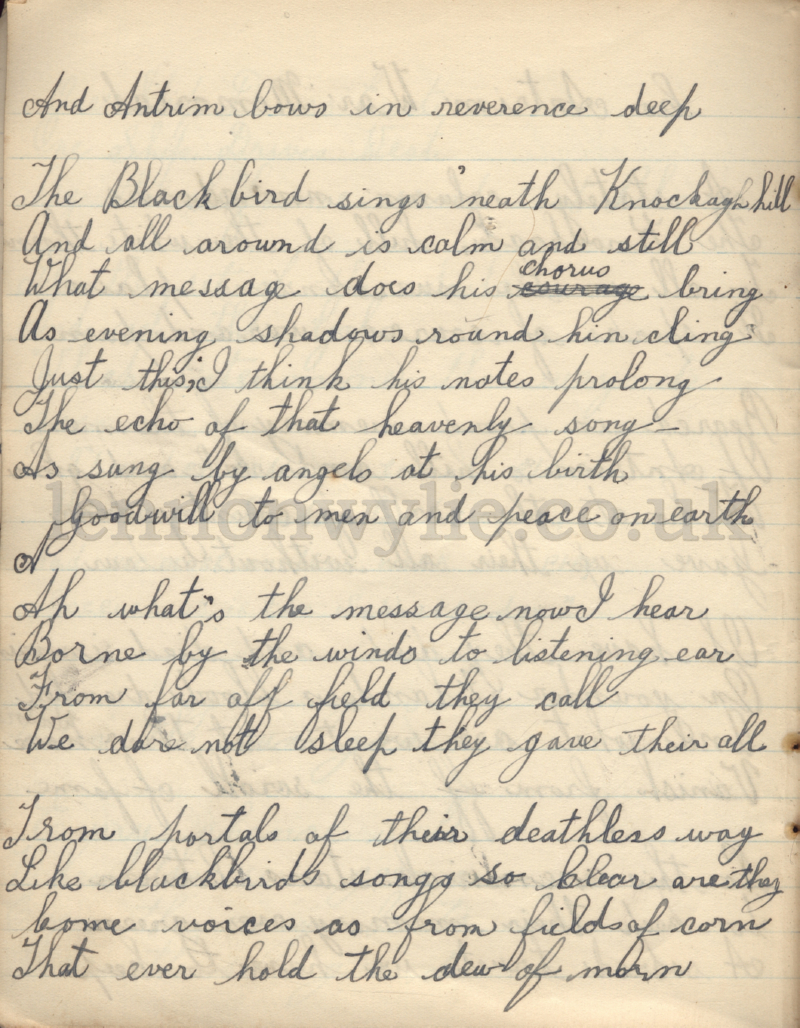 And Antrim bows in reverence deep
The Black bird sings 'neath Knockagh hill
And all around is calm and still
chorus
What message does his courage bring
As evening shadows round hin cling
Just this, I think his notes prolong
The echo of that heavenly song
As sung by angels at his birth
Goodwill to men and peace on earth
lennonwylie.co.uk
Ah what's the message now I hear
Borne by the winds to listening ear
From far off field they call
We dare not sleep they gave their all
From portals of their deathless way
Like blackbirds songs so clear are they
Come voices as from fields of corn
That ever hold the dew of morn